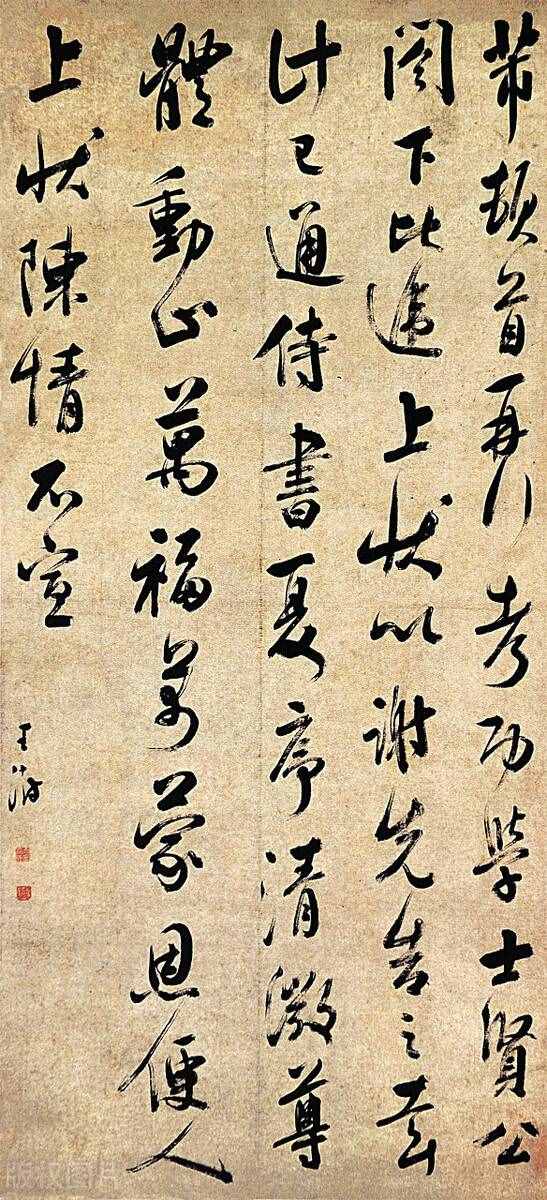 芾頓首再拜考功學士賢公
閣下比上狀以謝先告之
計已通侍書夏序清澂尊
體動止萬福蒙恩便人
上狀陳情不宣
王
版权图片